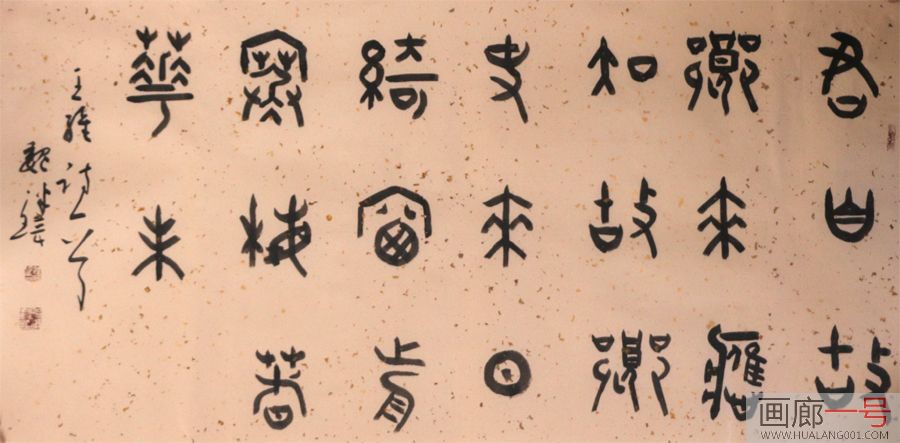 君自故
鄉來應
知故鄉
事來日
綺窗前
寒梅著
華未
王維詩一首
魏
画廊一号
WWW.HUALANG001.COM